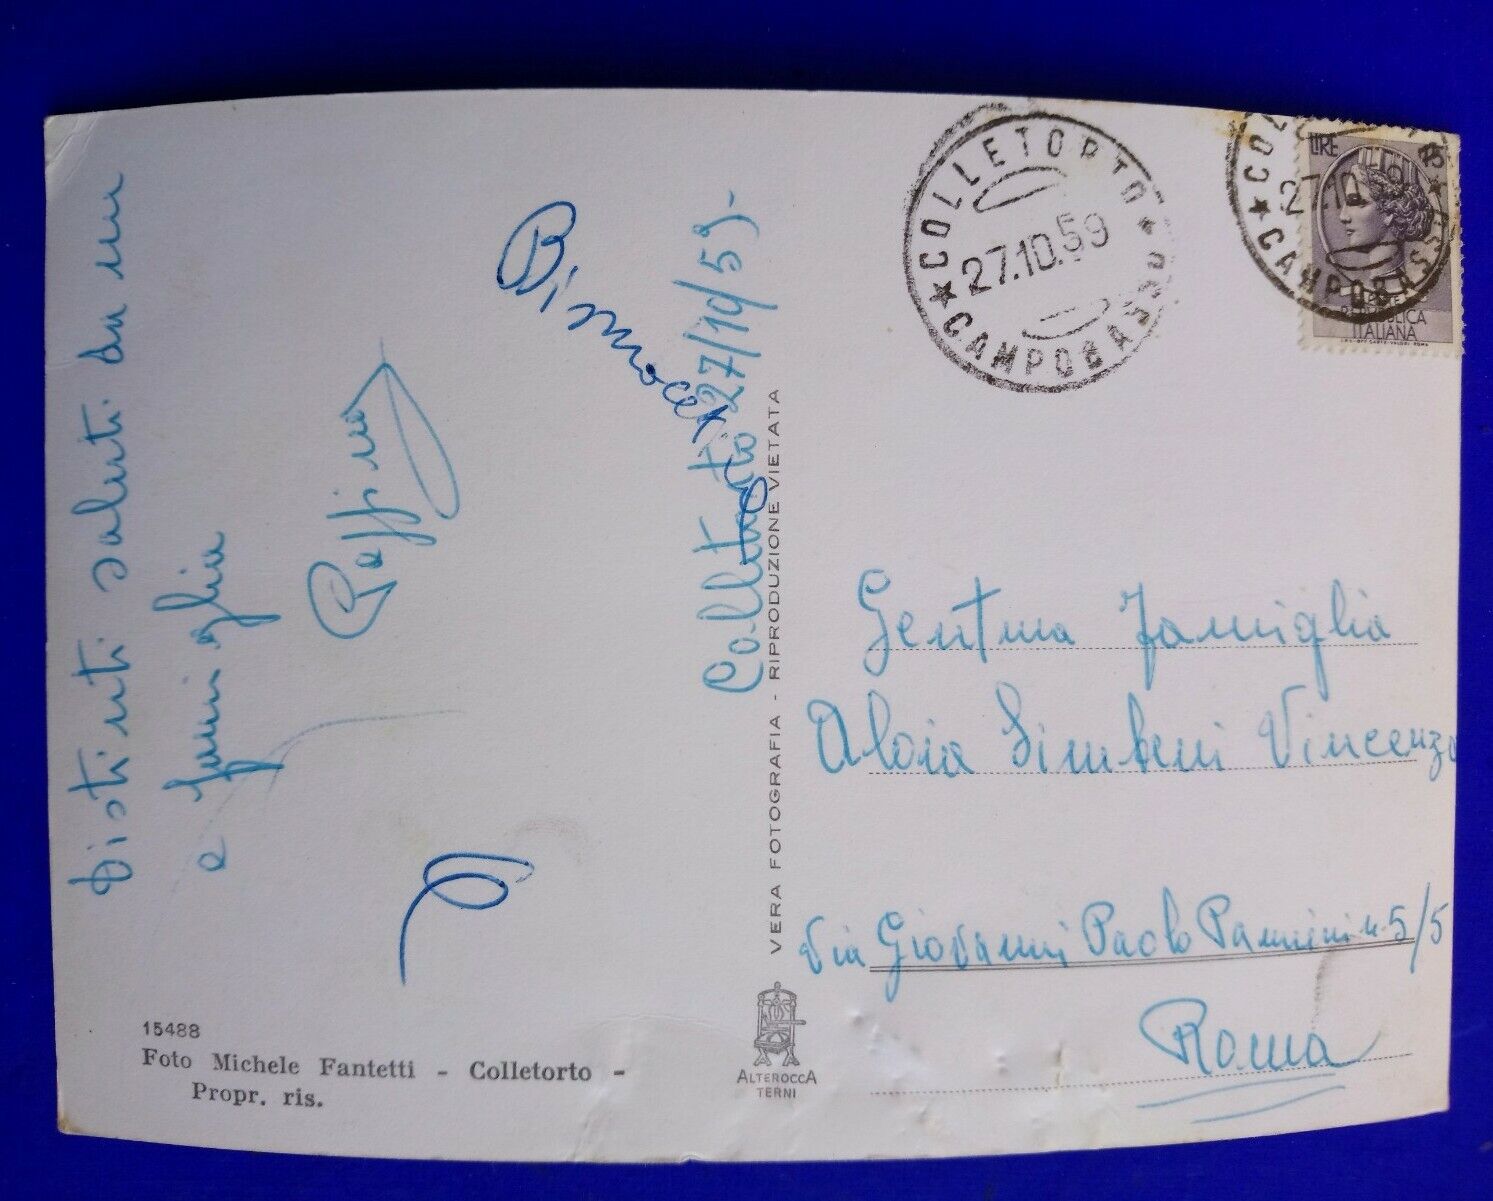 Distinti saluti da me
e famiglia
Colletorto 27/10/59-
15488
Foto Michele Fantetti - Colletorto -
Propr. ris.
VERA FOTOGRAFIA - RIPRODUZIONE VIETATA
ALTEROCCA
TERNI
★ COLLETORTO ★
27.10.59
CAMPOBASSO
COL
27.10
★ CAMPOBASSO
LIRE
REPUBBLICA
ITALIANA
Gentma Famiglia
Aloia Simteni Vincenzo
Via Giovanni Paolo Pannini n. 5/5
Roma